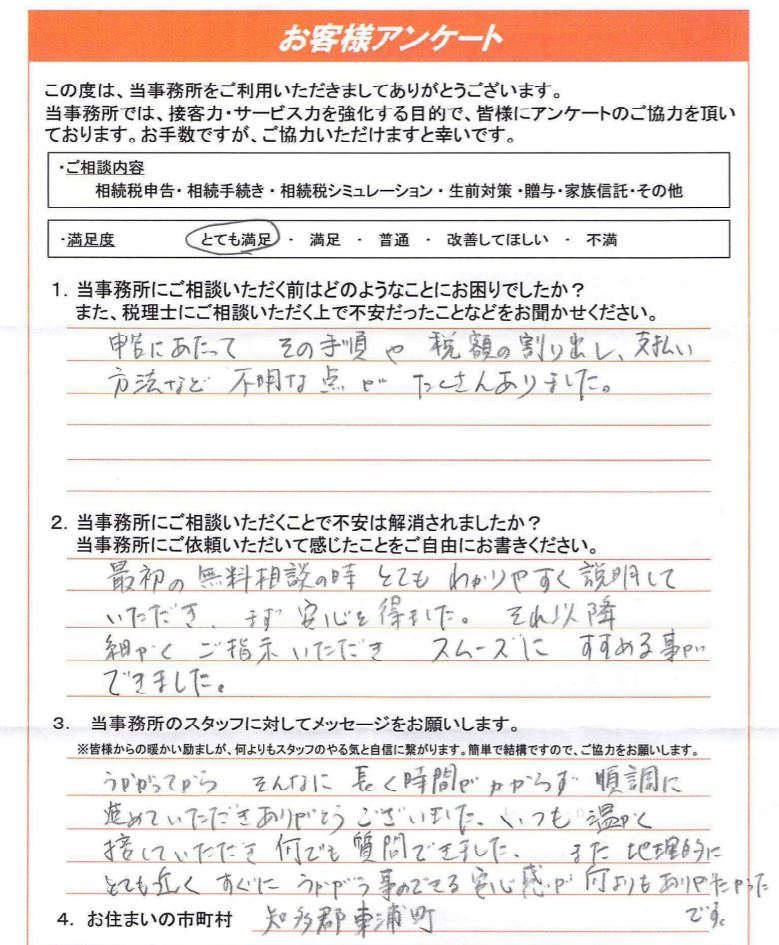 お客様アンケート
この度は、当事務所をご利用いただきましてありがとうございます。
当事務所では、接客力・サービス力を強化する目的で、皆様にアンケートのご協力を頂い
ております。お手数ですが、ご協力いただけますと幸いです。
・ご相談内容
相続税申告・相続手続き・相続税シミュレーション・生前対策・贈与・家族信託・その他
・満足度 とても満足 ・ 満足 ・ 普通 ・ 改善してほしい ・ 不満
1. 当事務所にご相談いただく前はどのようなことにお困りでしたか？
また、税理士にご相談いただく上で不安だったことなどをお聞かせください。
申告にあたって その手順や 税額の割り出し、支払い
方法など 不明な点が たくさんありました。
2. 当事務所にご相談いただくことで不安は解消されましたか？
当事務所にご依頼いただいて感じたことをご自由にお書きください。
最初の無料相談の時 とても わかりやすく説明して
いただき、まず安心を得ました。それ以降
細かく ご指示いただき スムーズに すすめる事が
できました。
3. 当事務所のスタッフに対してメッセージをお願いします。
※皆様からの暖かい励ましが、何よりもスタッフのやる気と自信に繋がります。簡単で結構ですので、ご協力をお願いします。
うかがってから そんなに長く時間がかからず 順調に
進めていただきありがとうございました。いつも温かく
接していただき何でも質問できました。また地理的に
とても近く すぐに うかがう事のできる安心感が何よりもありがたかった
です。
4. お住まいの市町村 知多郡東浦町